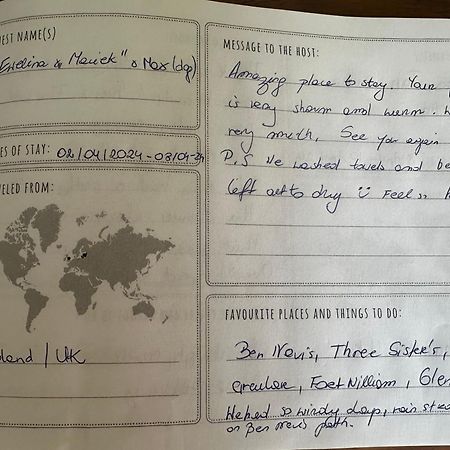 EST NAME(S)
Evelina & Maciek" & Max (dog)
ES OF STAY: 02/04/2024 - 03/04-24
VELED FROM:
land / UK
MESSAGE TO THE HOST:
Amazing place to stay. Your
is very sharm and warm.
very much. See you again
P.S We washed towels and be
left out to dry Feel so
FAVOURITE PLACES AND THINGS TO DO:
Ben Nevis, Three Sister's,
Fort William, Glen
We had so windy days, rain
on Ben Nevis path.